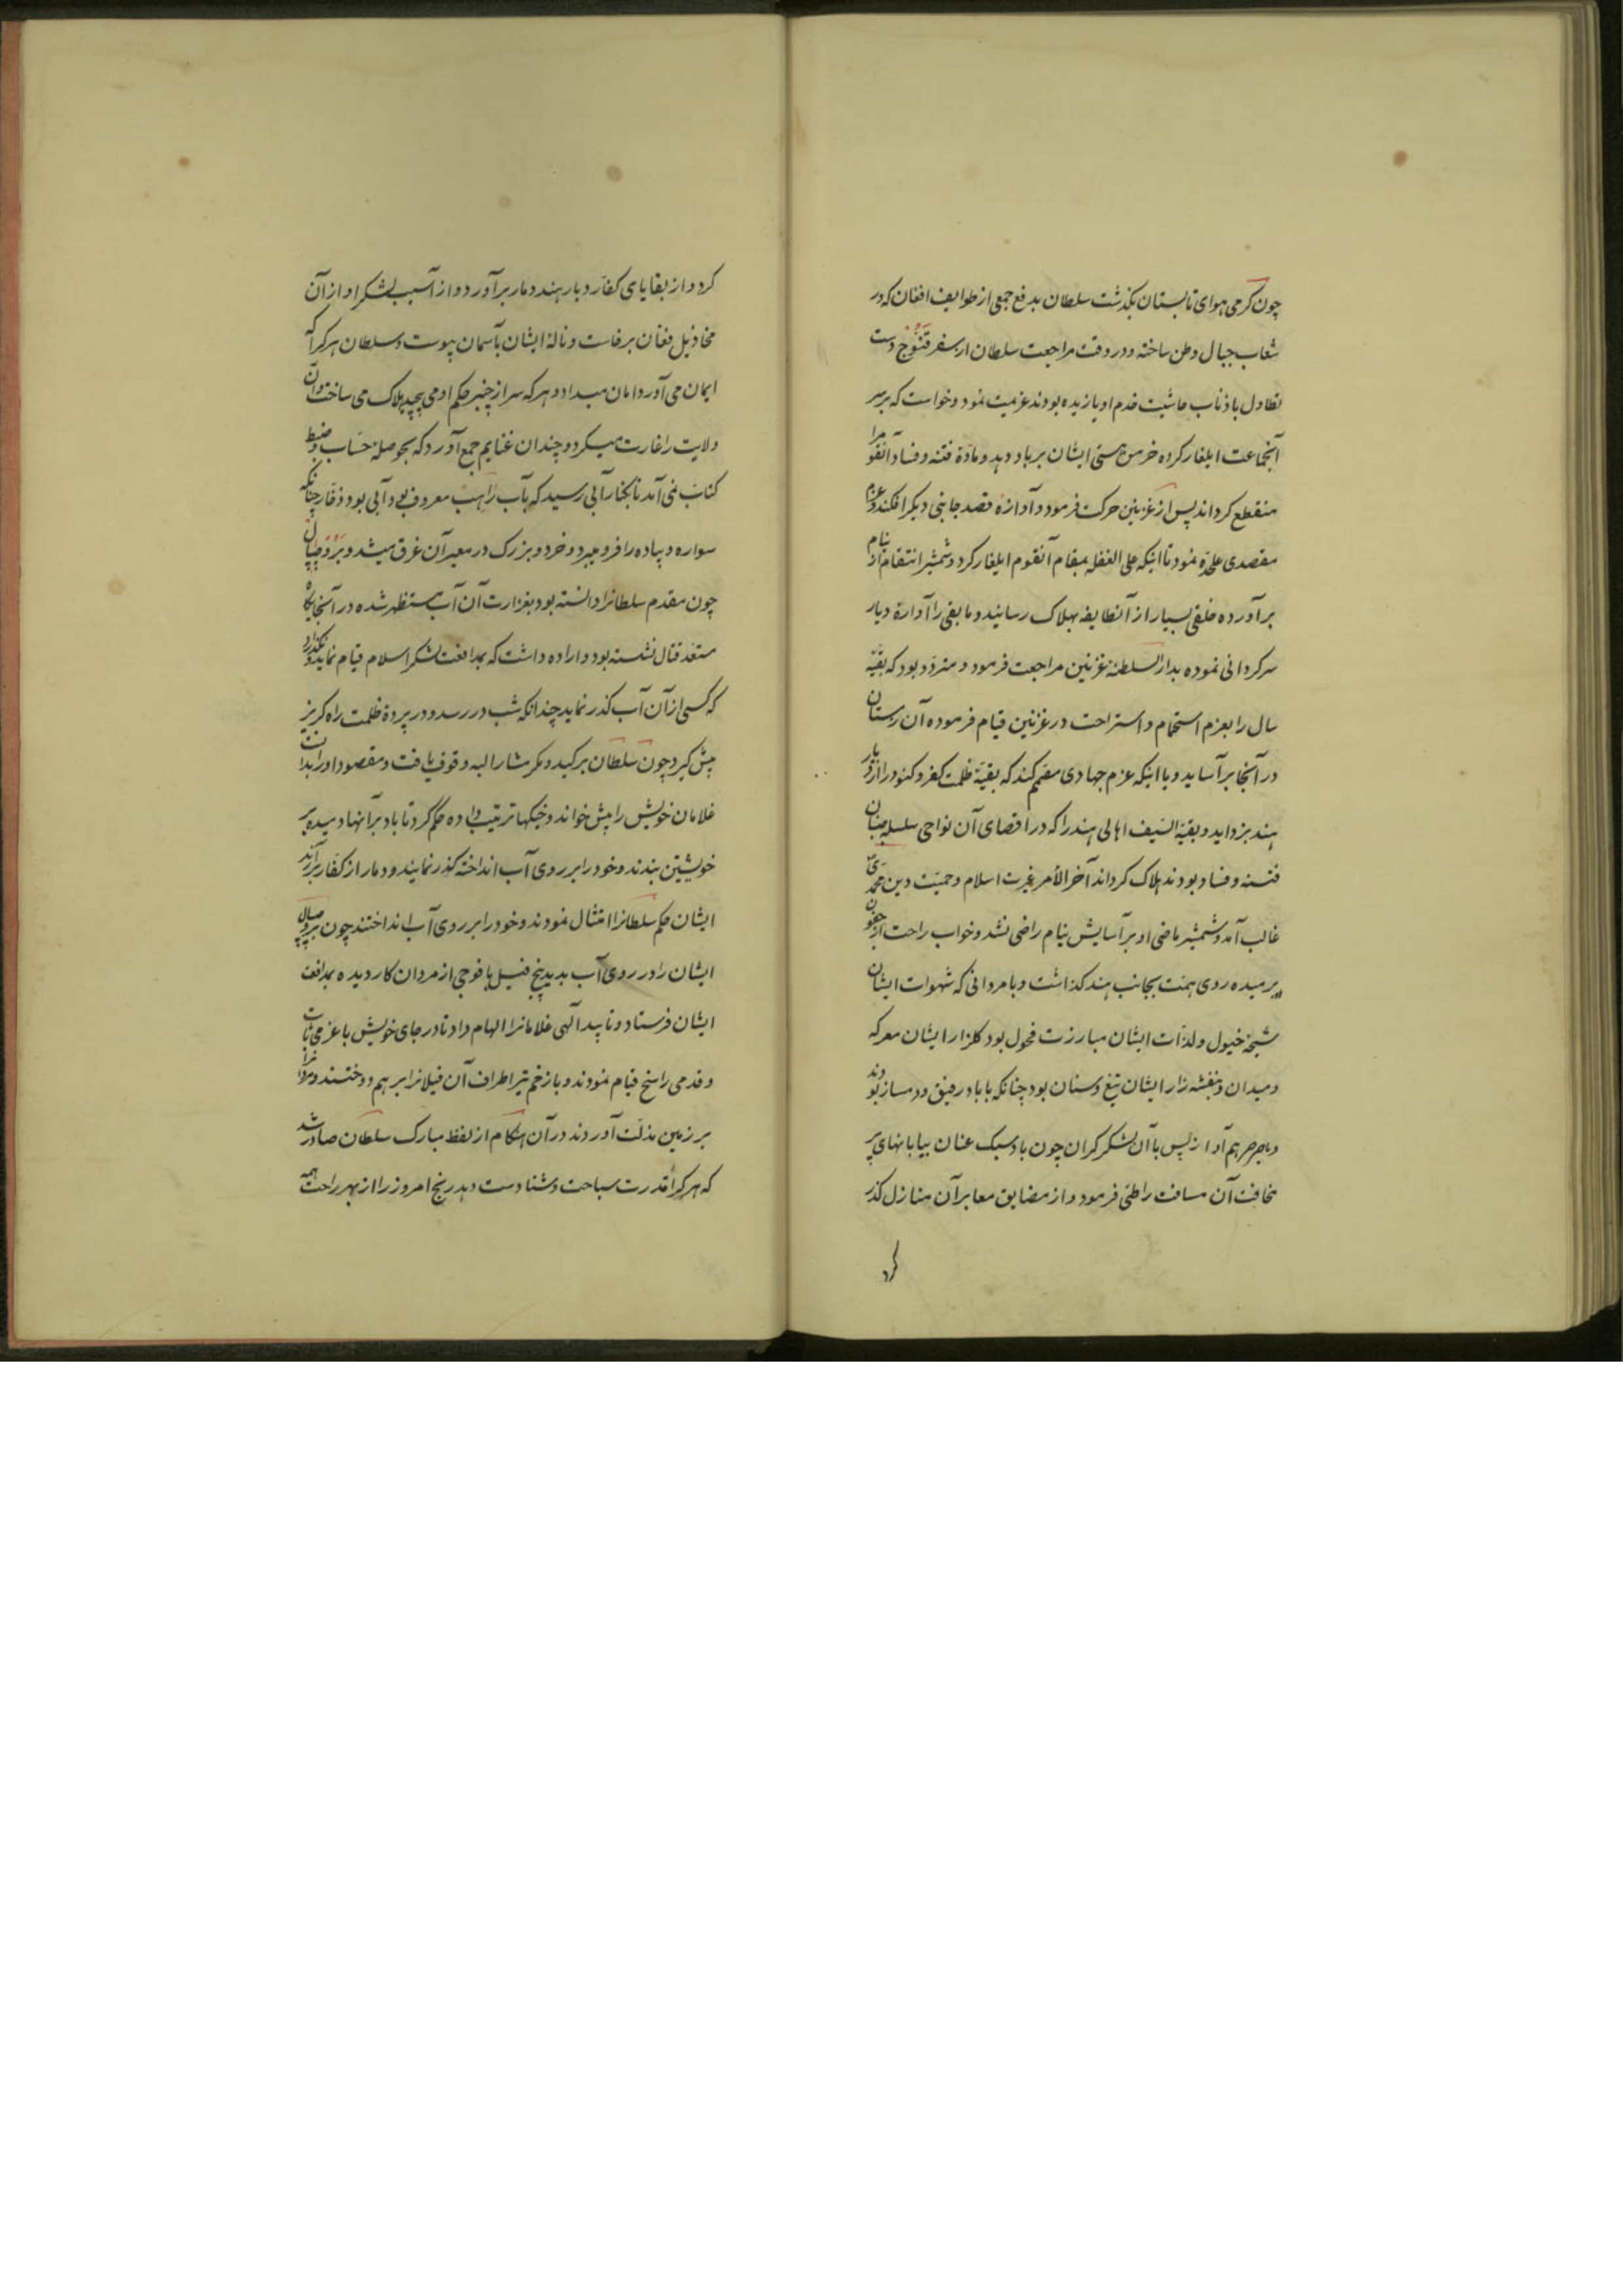 چون گرمی هوای تابستان بگذشت سلطان بدفع جمعی از طوایف افغان که در
شعاب جبال وطن ساخته و در وقت مراجعت سلطان از سفر قنّوج دست
تطاول باذناب حاشیت خدم او یازیده بودند عزیمت نمود و خواست که بر سر
آنجماعت ایلغار کرده خرمن هستی ایشان بر باد دهد و مادّهٔ فتنه و فساد آنقوم را
منقطع کرداند پس از غزنین حرکت فرمود و آوازهٔ قصد جانبی دیگر افکند و عزم
مقصدی علیحدّه نمود تا اینکه علی الغفله بمقام آنقوم ایلغار کرد و شمشیر انتقام از نیام
برآورده خلقی بسیار از آنطایفه بهلاک رسانید و مابقی را آوارهٔ دیار
سرکردانی نموده بدار السلطنهٔ غزنین مراجعت فرمود و متردّد بود که بقیّهٔ
سال را بعزم استجمام و استراحت در غزنین قیام فرموده آن زمستان
در آنجا برآساید و یا اینکه عزم جهادی مصمّم کند که بقیّهٔ ظلمت کفر و کنود را از دیار
هند بزداید و بقیّة السّیف اهالی هند را که در اقصای آن نواحی سلسله جنبان
فتنه و فساد بودند هلاک کرداند آخر الأمر غیرت اسلام و حمیّت دین محمّدی
غالب آمد و شمشیر ماضی او بر آسایش نیام راضی نشد و خواب راحت از جفون
برمیده روی همّت بجانب هند کذاشت و با مردانی که شهوات ایشان
شیحهٔ خیول و لذّات ایشان مبارزت فحول بود کلزار ایشان معرکه
و میدان و بنفشه زار ایشان تیغ و سنان بود چنانکه با باد رفیق و دمساز بودند
و با صرصر هم آواز پس با آن لشکر کران چون باد سبک عنان بیابانهای پر
مخافت آن مسافت را طیّ فرمود و از مضایق معابر آن منازل گذر
کرد
کرد و از بقایای کفّار دیار هند دمار برآورد و از آسیب لشکر او از آن
مخاذیل فغان برخاست و نالهٔ ایشان بآسمان پیوست و سلطان هرکرا که
ایمان می آورد امان میداد و هر که سر از چنبر حکم او می پیچید هلاک می ساخت و آن
ولایت را غارت میکرد و چندان غنایم جمع آورد که بحوصلهٔ حساب و ضبط
کتاب نمی آمد تا بکنار آبی رسید که بآب راهب معروف بود و آبی بود ذخّار چنانکه
سواره و پیاده را فرو میبرد و خرد و بزرک در معبر آن غرق میشد و بروجیپال
چون مقدم سلطانرا دانسته بود بغزارت آن آب مستظهر شده در آنجایگاه
مستعد قتال نشسته بود و اراده داشت که بمدافعت لشکر اسلام قیام نماید و نگذارد
که کسی از آن آب گذر نماید چندانکه شب در رسد و در پردهٔ ظلمت راه گریز
پیش گیرد چون سلطان بر کید و مکر مشار الیه وقوف یافت و مقصود او را بدانست
غلامان خویش را پیش خواند و خیکها ترتیب داده حکم کرد تا باد بر آنها دمیده بر
خویشتن بندند و خود را بر روی آب انداخته گذر نمایند و دمار از کفّار برآرند
ایشان حکم سلطانرا امتثال نمودند و خود را بر روی آب انداختند چون بروجیپال
ایشان را در روی آب بدید پنج فیل با فوجی از مردان کار دیده بمدافعت
ایشان فرستاد و تایید الهی غلامانرا الهام داد تا در جای خویش با عزمی ثابت
و قدمی راسخ قیام نمودند و با زخم تیر اطراف آن فیلانرا بر هم دوختند و مردانرا
بر زمین مذلّت آوردند در آن هنگام از لفظ مبارک سلطان صادر شد
که هر کرا قدرت سباحت و شنا دست دهد رنج امروز را از بهر راحت همه